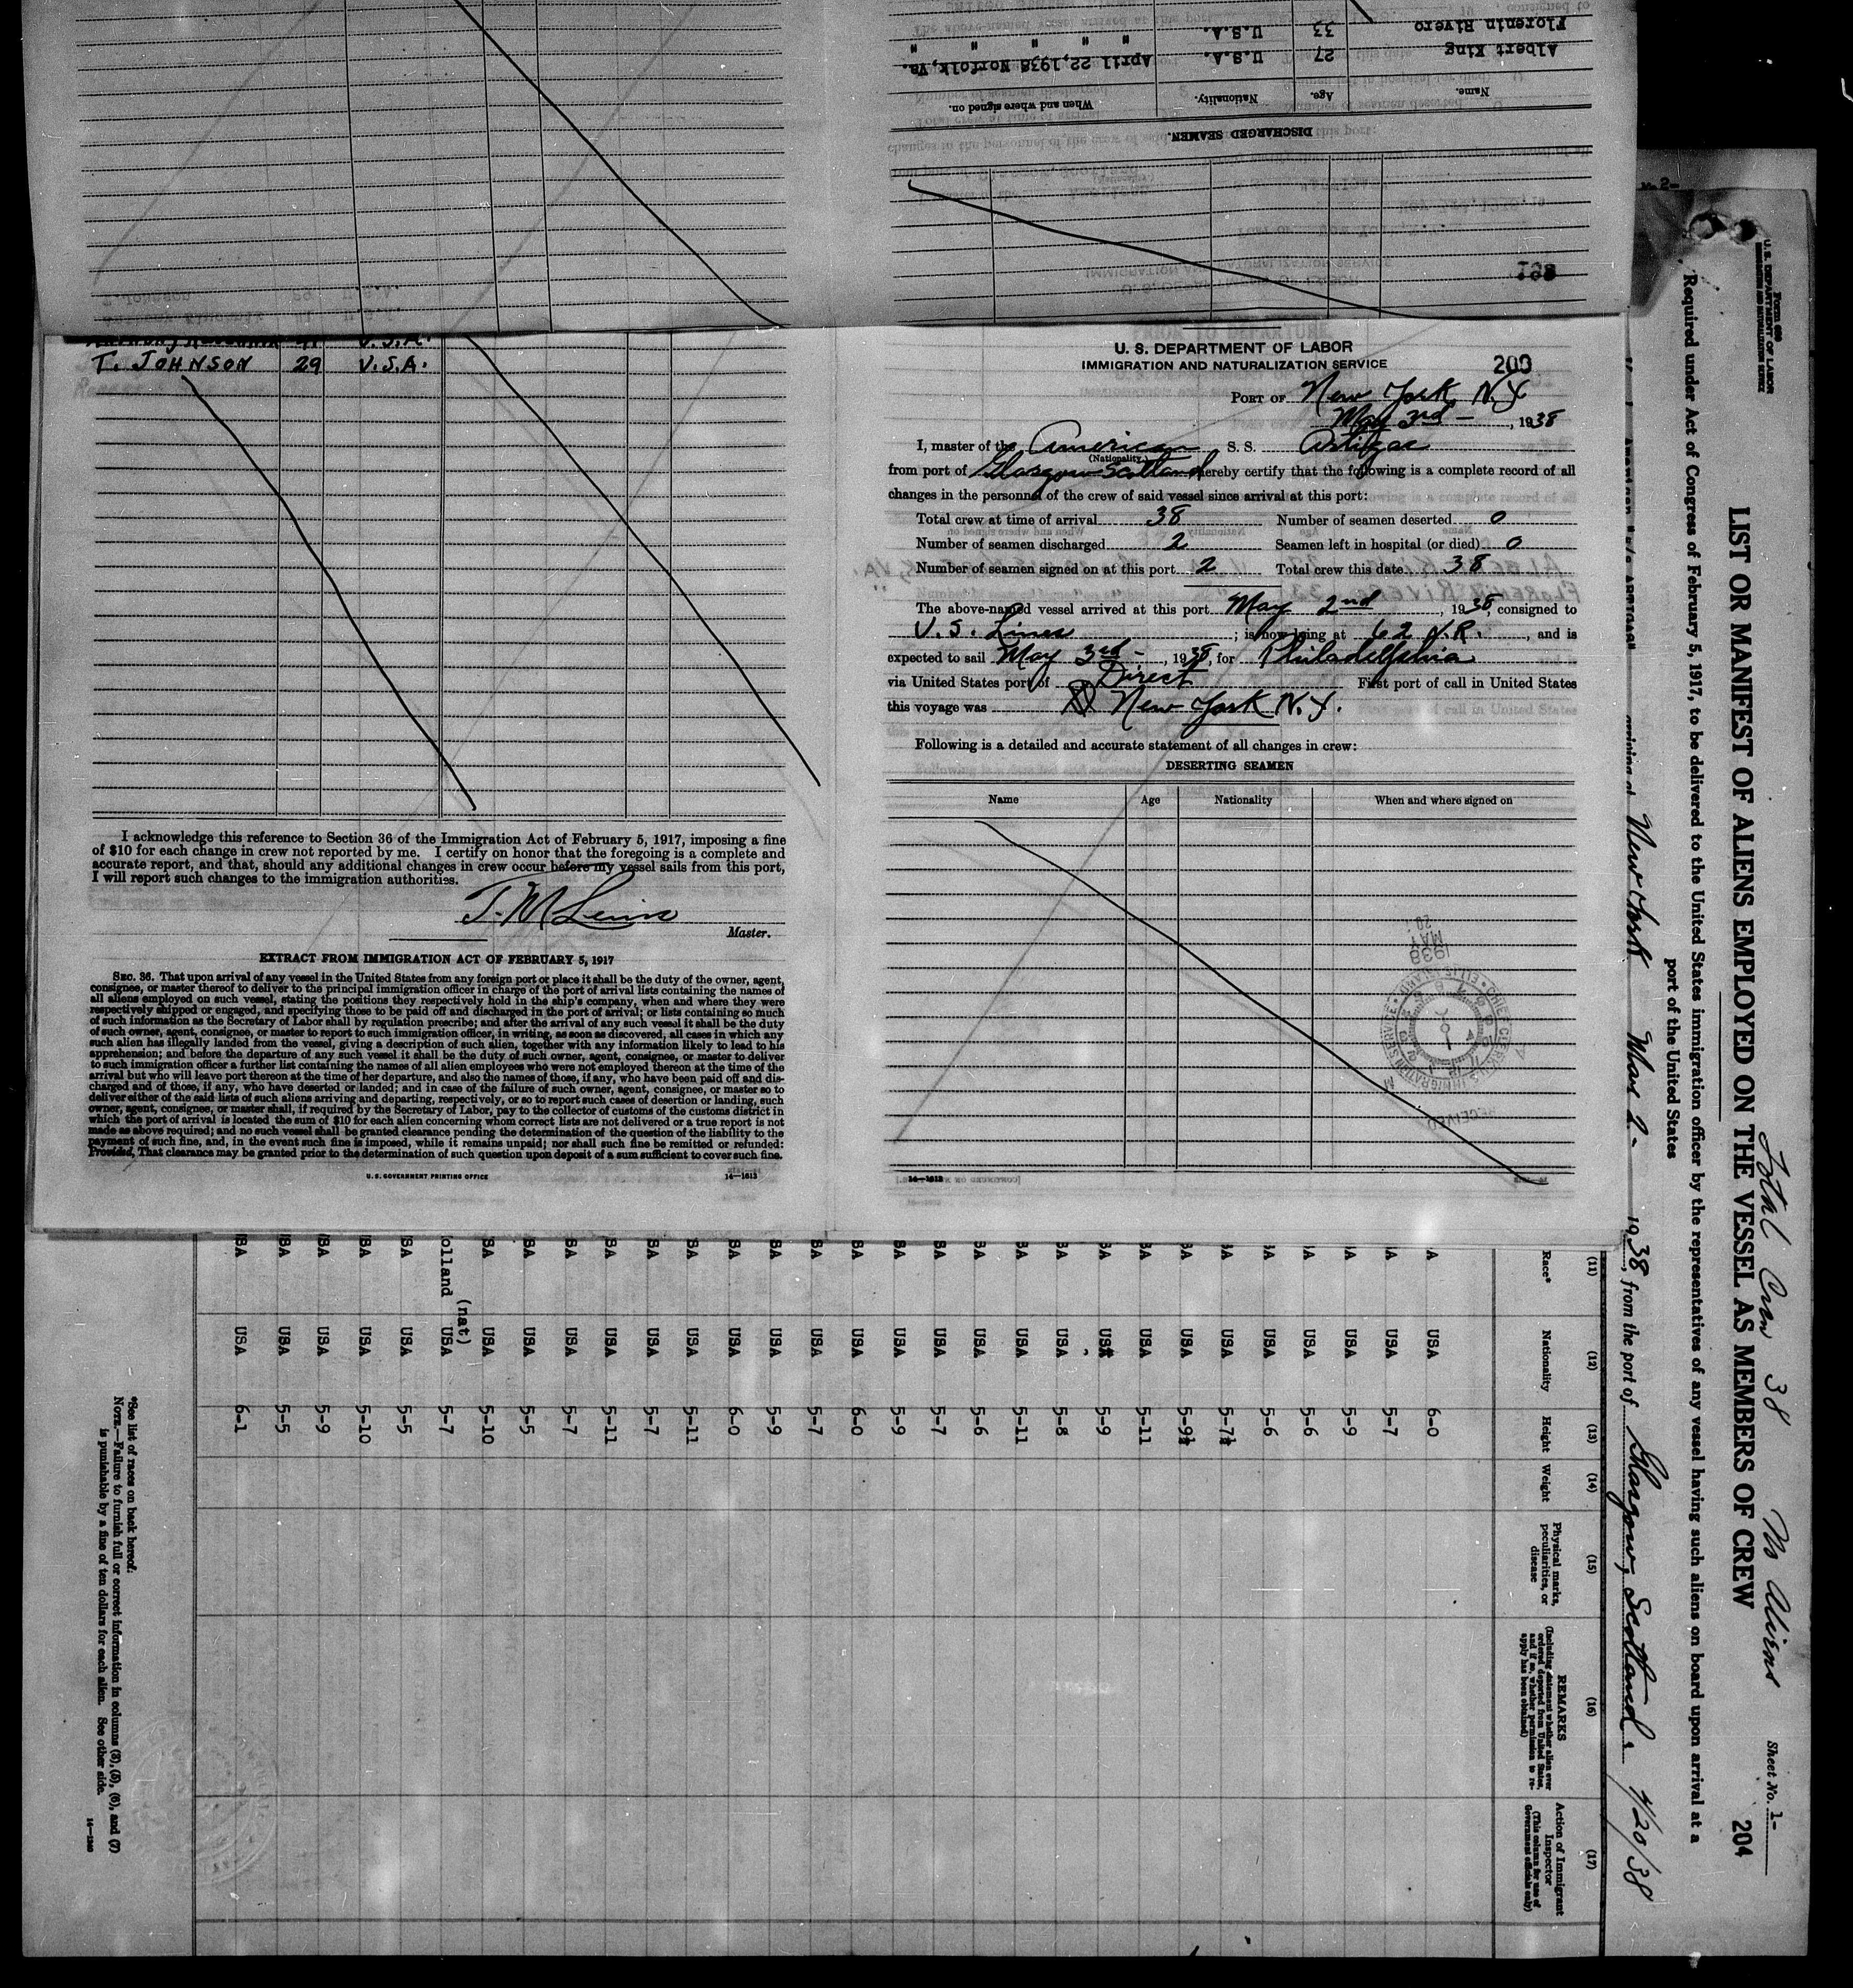 Florenin Rivero 33 U.S.A. " " " " "
Albert King 27 U.S.A. April 22,1938 Norfolk, Va.
Name. Age. Nationality. When and where signed on.
DISCHARGED SEAMEN.
T. JOHNSON 29 U.S.A.
I acknowledge this reference to Section 36 of the Immigration Act of February 5, 1917, imposing a fine
of $10 for each change in crew not reported by me. I certify on honor that the foregoing is a complete and
accurate report, and that, should any additional changes in crew occur before my vessel sails from this port,
I will report such changes to the immigration authorities.
Master.
EXTRACT FROM IMMIGRATION ACT OF FEBRUARY 5, 1917
SEC. 36. That upon arrival of any vessel in the United States from any foreign port or place it shall be the duty of the owner, agent,
consignee, or master thereof to deliver to the principal immigration officer in charge of the port of arrival lists containing the names of
all aliens employed on such vessel, stating the positions they respectively hold in the ship's company, when and where they were
respectively shipped or engaged, and specifying those to be paid off and discharged in the port of arrival; or lists containing so much
of such information as the Secretary of Labor shall by regulation prescribe; and after the arrival of any such vessel it shall be the duty
of such owner, agent, consignee, or master to report to such immigration officer, in writing, as soon as discovered, all cases in which any
such alien has illegally landed from the vessel, giving a description of such alien, together with any information likely to lead to his
apprehension; and before the departure of any such vessel it shall be the duty of such owner, agent, consignee, or master to deliver
to such immigration officer a further list containing the names of all alien employees who were not employed thereon at the time of the
arrival but who will leave port thereon at the time of her departure, and also the names of those, if any, who have been paid off and dis-
charged and of those, if any, who have deserted or landed; and in case of the failure of such owner, agent, consignee, or master so to
deliver either of the said lists of such aliens arriving and departing, respectively, or so to report such cases of desertion or landing, such
owner, agent, consignee, or master shall, if required by the Secretary of Labor, pay to the collector of customs of the customs district in
which the port of arrival is located the sum of $10 for each alien concerning whom correct lists are not delivered or a true report is not
made as above required; and no such vessel shall be granted clearance pending the determination of the question of the liability to the
payment of such fine, and, in the event such fine is imposed, while it remains unpaid; nor shall such fine be remitted or refunded:
Provided, That clearance may be granted prior to the determination of such question upon deposit of a sum sufficient to cover such fine.
U.S. GOVERNMENT PRINTING OFFICE 14—1613
U. S. DEPARTMENT OF LABOR
IMMIGRATION AND NATURALIZATION SERVICE
200
PORT OF New York N.Y.
May 3rd - , 1938
I, master of the American S. S. Artigas
(Nationality)
from port of Glasgow Scotland, hereby certify that the following is a complete record of all
changes in the personnel of the crew of said vessel since arrival at this port:
Total crew at time of arrival 38 Number of seamen deserted 0
Number of seamen discharged 2 Seamen left in hospital (or died) 0
Number of seamen signed on at this port 2 Total crew this date 38
The above-named vessel arrived at this port May 2nd , 1938, consigned to
U.S. Lines ; is now lying at 62 N.R. , and is
expected to sail May 3rd - , 1938, for Philadelphia
via United States port of Direct First port of call in United States
this voyage was New York N.Y.
Following is a detailed and accurate statement of all changes in crew:
DESERTING SEAMEN
Name Age Nationality When and where signed on
1938
MAY
14—1613
Form 689
U. S. DEPARTMENT OF LABOR
IMMIGRATION AND NATURALIZATION SERVICE
Total Crew 38 No Aliens
Sheet No. 1-
204
LIST OR MANIFEST OF ALIENS EMPLOYED ON THE VESSEL AS MEMBERS OF CREW
Required under Act of Congress of February 5, 1917, to be delivered to the United States immigration officer by the representatives of any vessel having such aliens on board upon arrival at a
port of the United States
arriving at New York May 2- 1938, from the port of Glasgow, Scotland. 4/20/38
(11) (12) (13) (14) (15) (16) (17)
Race* Nationality Height Weight Physical marks, peculiarities, or disease REMARKS (Including statement whether alien ever ordered deported from United States, and if so, whether permission to re-apply has been obtained) Action of Immigrant Inspector (This column for use of Government officials only)
A USA 6-0
IA USA 5-7
IA USA 5-9
IA USA 5-6
IA USA 5-6
IA USA 5-7½
BA USA 5-9½
BA USA 5-11
BA USA 5-9
BA USA 5-8
BA USA 5-11
BA USA 5-6
BA USA 5-7
BA USA 5-9
BA USA 6-0
BA USA 5-7
BA USA 5-9
BA USA 6-0
BA USA 5-11
BA USA 5-11
BA USA 5-7
BA USA 5-5
BA USA 5-10
olland (nat) USA 5-7
SA USA 5-5
BA USA 5-10
BA USA 5-9
BA USA 5-5
BA USA 6-1
*See list of races on back hereof.
NOTE.—Failure to furnish full or correct information in columns (3), (5), (6), and (7)
is punishable by a fine of ten dollars for each alien. See other side.